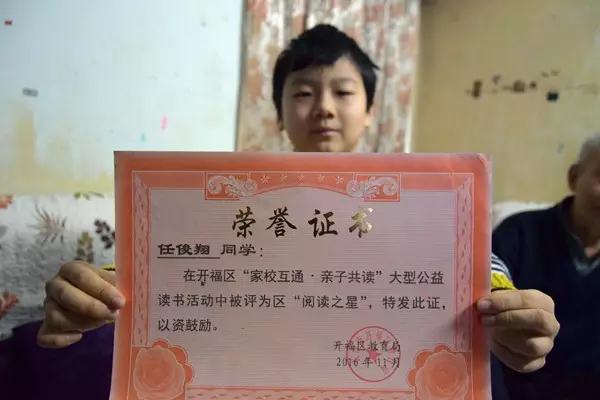 荣誉证书
任俊翔 同学：
在开福区“家校互通·亲子共读”大型公益
读书活动中被评为区“阅读之星”，特发此证，
以资鼓励。
开福区教育局
2016年11月